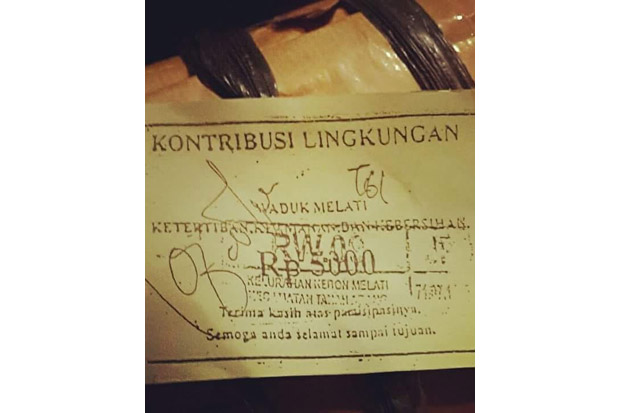 KONTRIBUSI LINGKUNGAN
Tgl
WADUK MELATI
KETERTIBAN, KEAMANAN, DAN KEBERSIHAN.
RW.06
Rp 5000
KELURAHAN KEBON MELATI
KECAMATAN TANAH ABANG
Terima kasih atas partisipasinya.
Semoga anda selamat sampai tujuan.